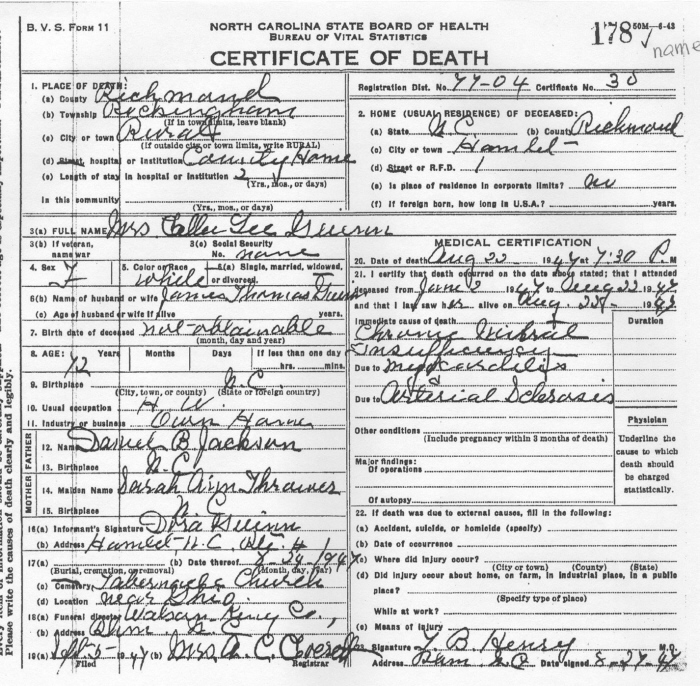 B. V. S. FORM 11
NORTH CAROLINA STATE BOARD OF HEALTH
BUREAU OF VITAL STATISTICS
CERTIFICATE OF DEATH
178 50M—6-43
✓ name
Registration Dist. No. 77-04 Certificate No. 30
1. PLACE OF DEATH:
(a) County Richmond
(b) Township Rockingham
(If in town limits, leave blank)
(c) City or town Rural
(If outside city or town limits, write RURAL)
(d) Street, hospital or Institution County Home
(e) Length of stay in hospital or institution 2
(Yrs., mos., or days)
In this community
(Yrs., mos., or days)
2. HOME (USUAL RESIDENCE) OF DECEASED:
(a) State N C (b) County Richmond
(c) City or town Hamlet
(d) Street or R.F.D. 1
(e) Is place of residence in corporate limits? no
(f) If foreign born, how long in U.S.A.? years.
3(a) FULL NAME Mrs Lee Guinn
3(b) If veteran, name war
3(c) Social Security No. none
4. Sex F
5. Color or Race white
6(a) Single, married, widowed, or divorced.
6(b) Name of husband or wife James Thomas Guinn
(c) Age of husband or wife if alive years.
7. Birth date of deceased not-obtainable
(month, day and year)
8. AGE: Years Months Days If less than one day
72 hrs. mins.
9. Birthplace N. C.
(City, town, or county) (State or foreign country)
10. Usual occupation H W
11. Industry or business Own Home
FATHER
12. Name Daniel B. Jackson
13. Birthplace N. C.
MOTHER
14. Maiden Name Sarah Ann Thrower
15. Birthplace N. C
16(a) Informant's Signature Dora Guinn
(b) Address Hamlet N. C. 1
17(a) (b) Date thereof 8 24 1947
(Burial, cremation, or removal) (Month, day, year)
(c) Cemetery Tabernacle Church
(d) Location near Ohio
18(a) Funeral director Watson King Co.,
(b) Address
19(a) Sept-5- 1947 (b) Mrs A. C.
Filed Registrar
MEDICAL CERTIFICATION
20. Date of death Aug 22 1947 at 7:30 P. M
21. I certify that death occurred on the date above stated; that I attended
deceased from June 2 1947 to Aug 22 1947
and that I last saw her alive on Aug. 22 1947
Immediate cause of death Duration
Chronic Mitral
Insufficiency
Due to Myocarditis
Due to Arterial Sclerosis
Other conditions
(Include pregnancy within 3 months of death)
Major findings:
Of operations
Of autopsy
Physician
Underline the cause to which death should be charged statistically.
22. If death was due to external causes, fill in the following:
(a) Accident, suicide, or homicide (specify)
(b) Date of occurrence
(c) Where did injury occur?
(City or town) (County) (State)
(d) Did injury occur about home, on farm, in industrial place, in a public
place?
(Specify type of place)
While at work?
(e) Means of injury
Signature T. B. Henry M.D.
Address N C Date signed 8-27-47
Please write the causes of death clearly and legibly.